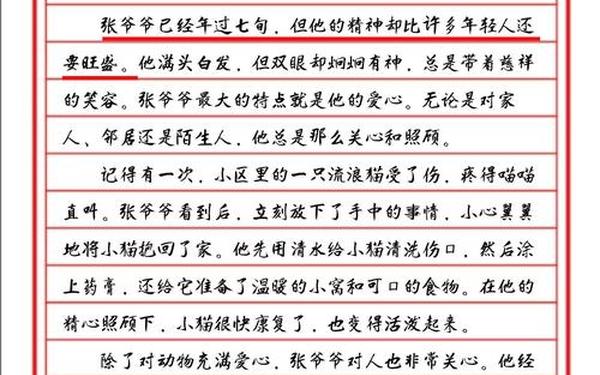 张爷爷已经年过七旬，但他的精神却比许多年轻人还
要旺盛。他满头白发，但双眼却炯炯有神，总是带着慈祥
的笑容。张爷爷最大的特点就是他的爱心。无论是对家
人、邻居还是陌生人，他总是那么关心和照顾。
记得有一次，小区里的一只流浪猫受了伤，疼得喵喵
直叫。张爷爷看到后，立刻放下了手中的事情，小心翼翼
地将小猫抱回了家。他先用清水给小猫清洗伤口，然后涂
上药膏，还给它准备了温暖的小窝和可口的食物。在他的
精心照顾下，小猫很快康复了，也变得活泼起来。
除了对动物充满爱心，张爷爷对人也非常关心。他经